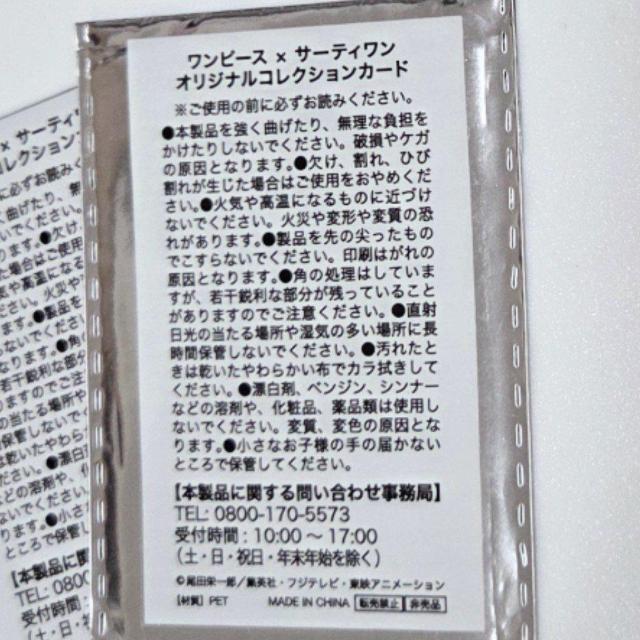 ワンピース × サーティワン
オリジナルコレクションカード
※ご使用の前に必ずお読みください。
●本製品を強く曲げたり、無理な負担を
かけたりしないでください。破損やケガ
の原因となります。●欠け、割れ、ひび
割れが生じた場合はご使用をおやめくだ
さい。●火気や高温になるものに近づけ
ないでください。火災や変形や変質の恐
れがあります。●製品を先の尖ったもの
でこすらないでください。印刷はがれの
原因となります。●角の処理はしていま
すが、若干鋭利な部分が残っていること
がありますのでご注意ください。●直射
日光の当たる場所や湿気の多い場所に長
時間保管しないでください。●汚れたと
きは乾いたやわらかい布でカラ拭きして
ください。●漂白剤、ベンジン、シンナー
などの溶剤や、化粧品、薬品類は使用し
ないでください。変質、変色の原因とな
ります。●小さなお子様の手の届かない
ところで保管してください。
【本製品に関する問い合わせ事務局】
TEL: 0800-170-5573
受付時間：10:00～17:00
（土・日・祝日・年末年始を除く）
©尾田栄一郎／集英社・フジテレビ・東映アニメーション
【材質】PET MADE IN CHINA 転売禁止 非売品
× サーティワン
レクションカ
に必ずお読み
曲げたり、無
いでください
ます。●欠け
合はご使用
温になる
い。火災や
す。●
でくださ
ます。●角
若干鋭利な
すのでご注
の当たる場所
しないで
いたやわら
●漂白
の溶剤や、
ください
。●小さ
ところで保管
【本製品に関
TEL: 0800
受付時間：
（土・日・祝